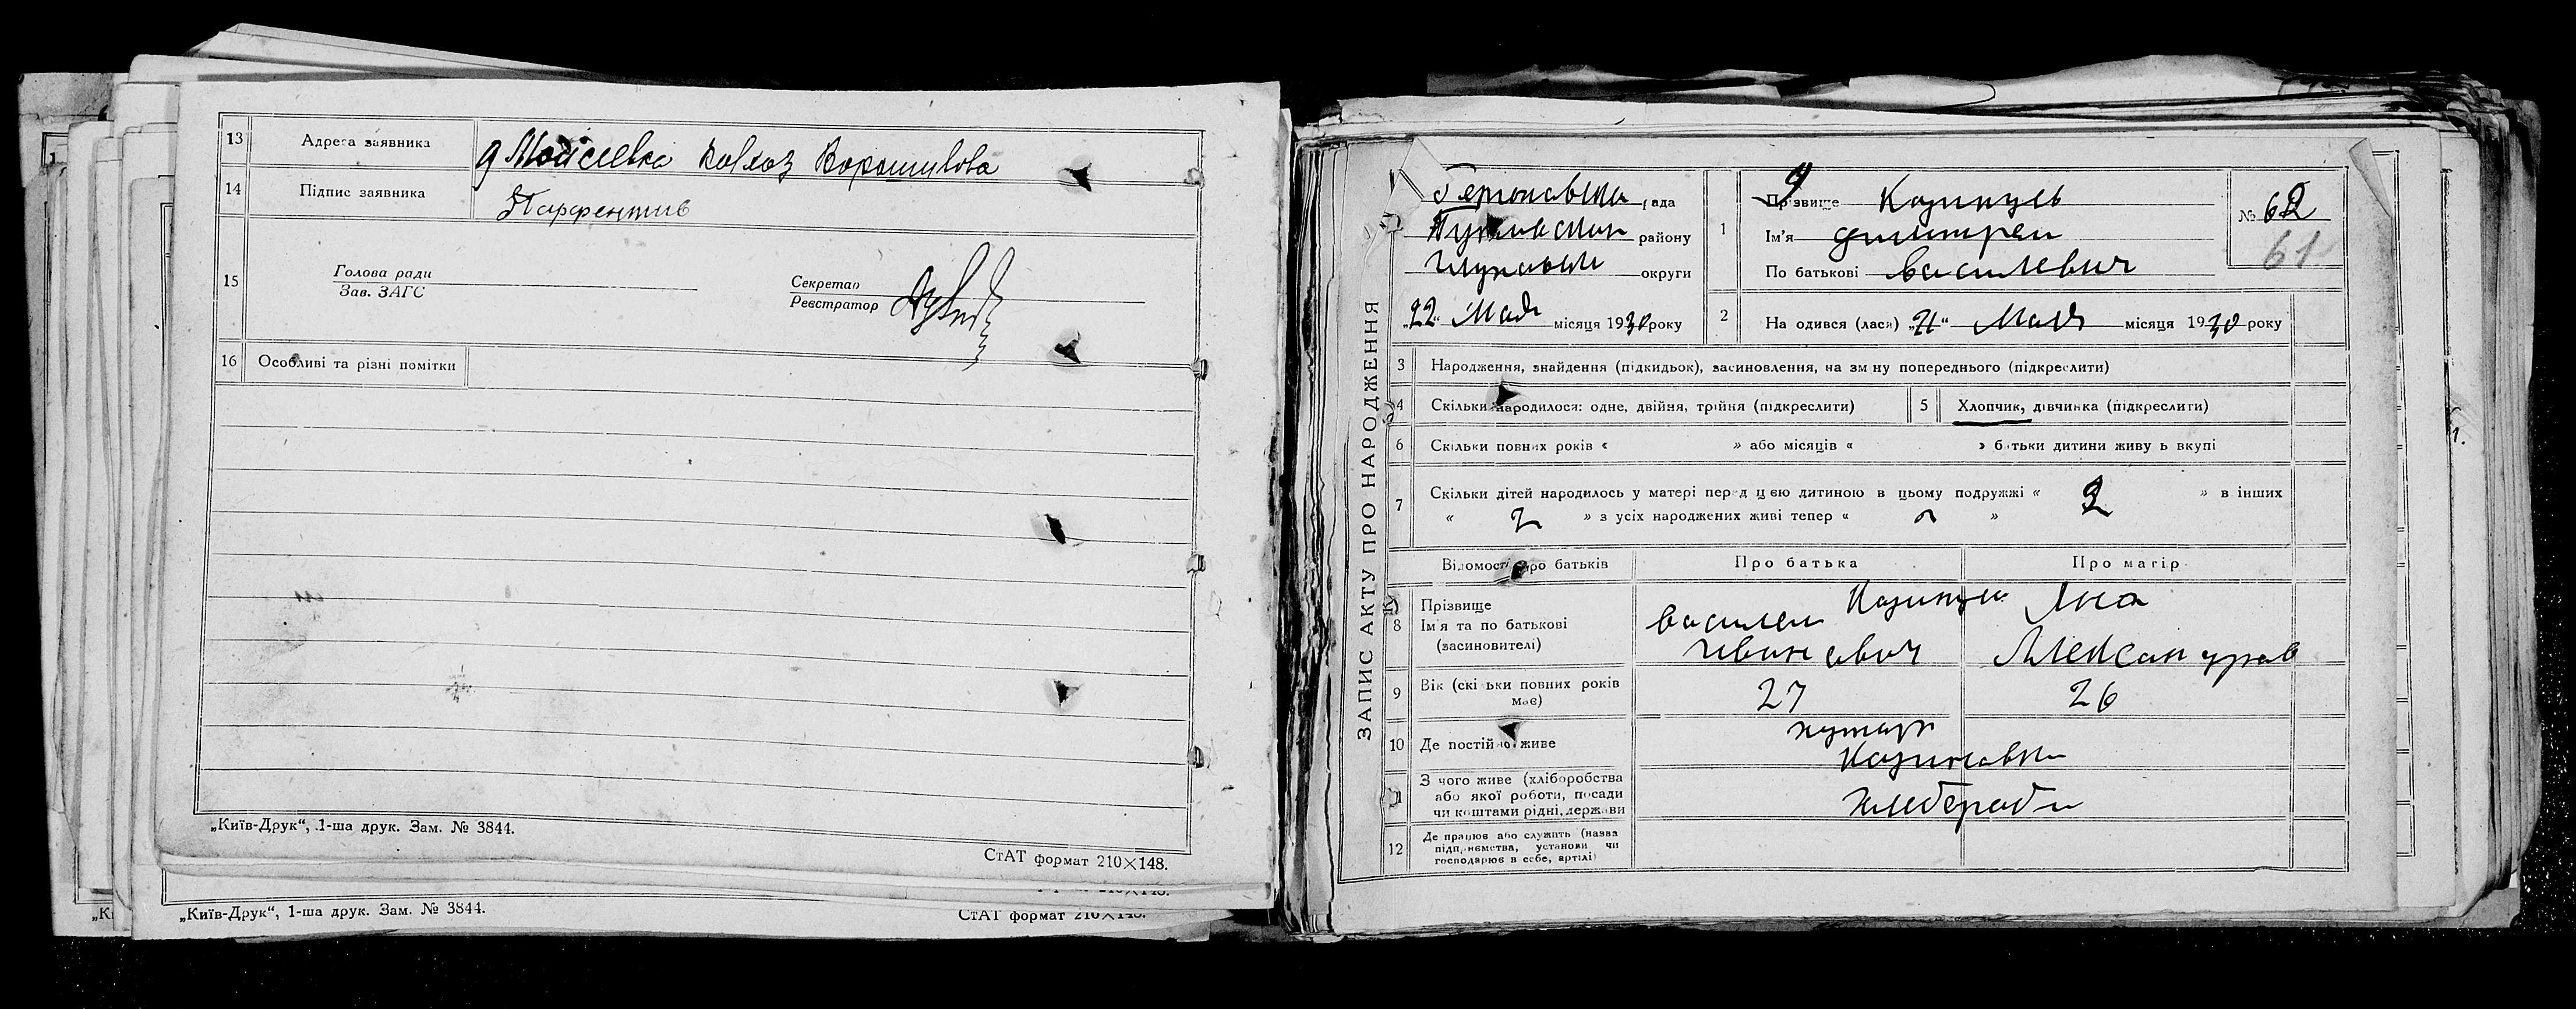 13 Адреса заявника д Мойсеевка колхоз Ворошилова
14 Підпис заявника
15 Голова ради
Зав. ЗАГС
Секретар
Реєстратор
16 Особливі та різні помітки
„Київ-Друк“, 1-ша друк. Зам. № 3844.
СтАТ формат 210×148.
„Київ-Друк“, 1-ша друк. Зам. № 3844.
СтАТ формат 210×148.
ЗАПИС АКТУ ПРО НАРОДЖЕННЯ
рада
району
округи
„22“ Мая місяця 1930 року
1 Прізвище Казинцев
Ім'я Дмитрей
По батькові Василевич
№ 62
61
2 Народився (лася) „21“ Мая місяця 1930 року
3 Народження, знайдення (підкидьок), засиновлення, на зміну попереднього (підкреслити)
4 Скільки народилося: одне, двійня, трійня (підкреслити)
5 Хлопчик, дівчинка (підкреслити)
6 Скільки повних років « » або місяців « » батьки дитини живуть вкупі
7 Скільки дітей народилось у матері перед цією дитиною в цьому подружжі « 2 » в інших
« 2 » з усіх народжених живі тепер « »
Відомості про батьків
Про батька
Про матір
8 Прізвище
Ім'я та по батькові
(засиновителі)
Казинцеи
Василеи
Иванович
Яна
Александрав
9 Вік (скільки повних років
має)
27
26
10 Де постійно живе
хутарь
Казинавка
11 З чого живе (хліборобства
або якої роботи, посади
чи коштами рідні, держави
хлебороби
12 Де працює або служить (назва
підприємства, установи чи
господарює в себе, артілі)